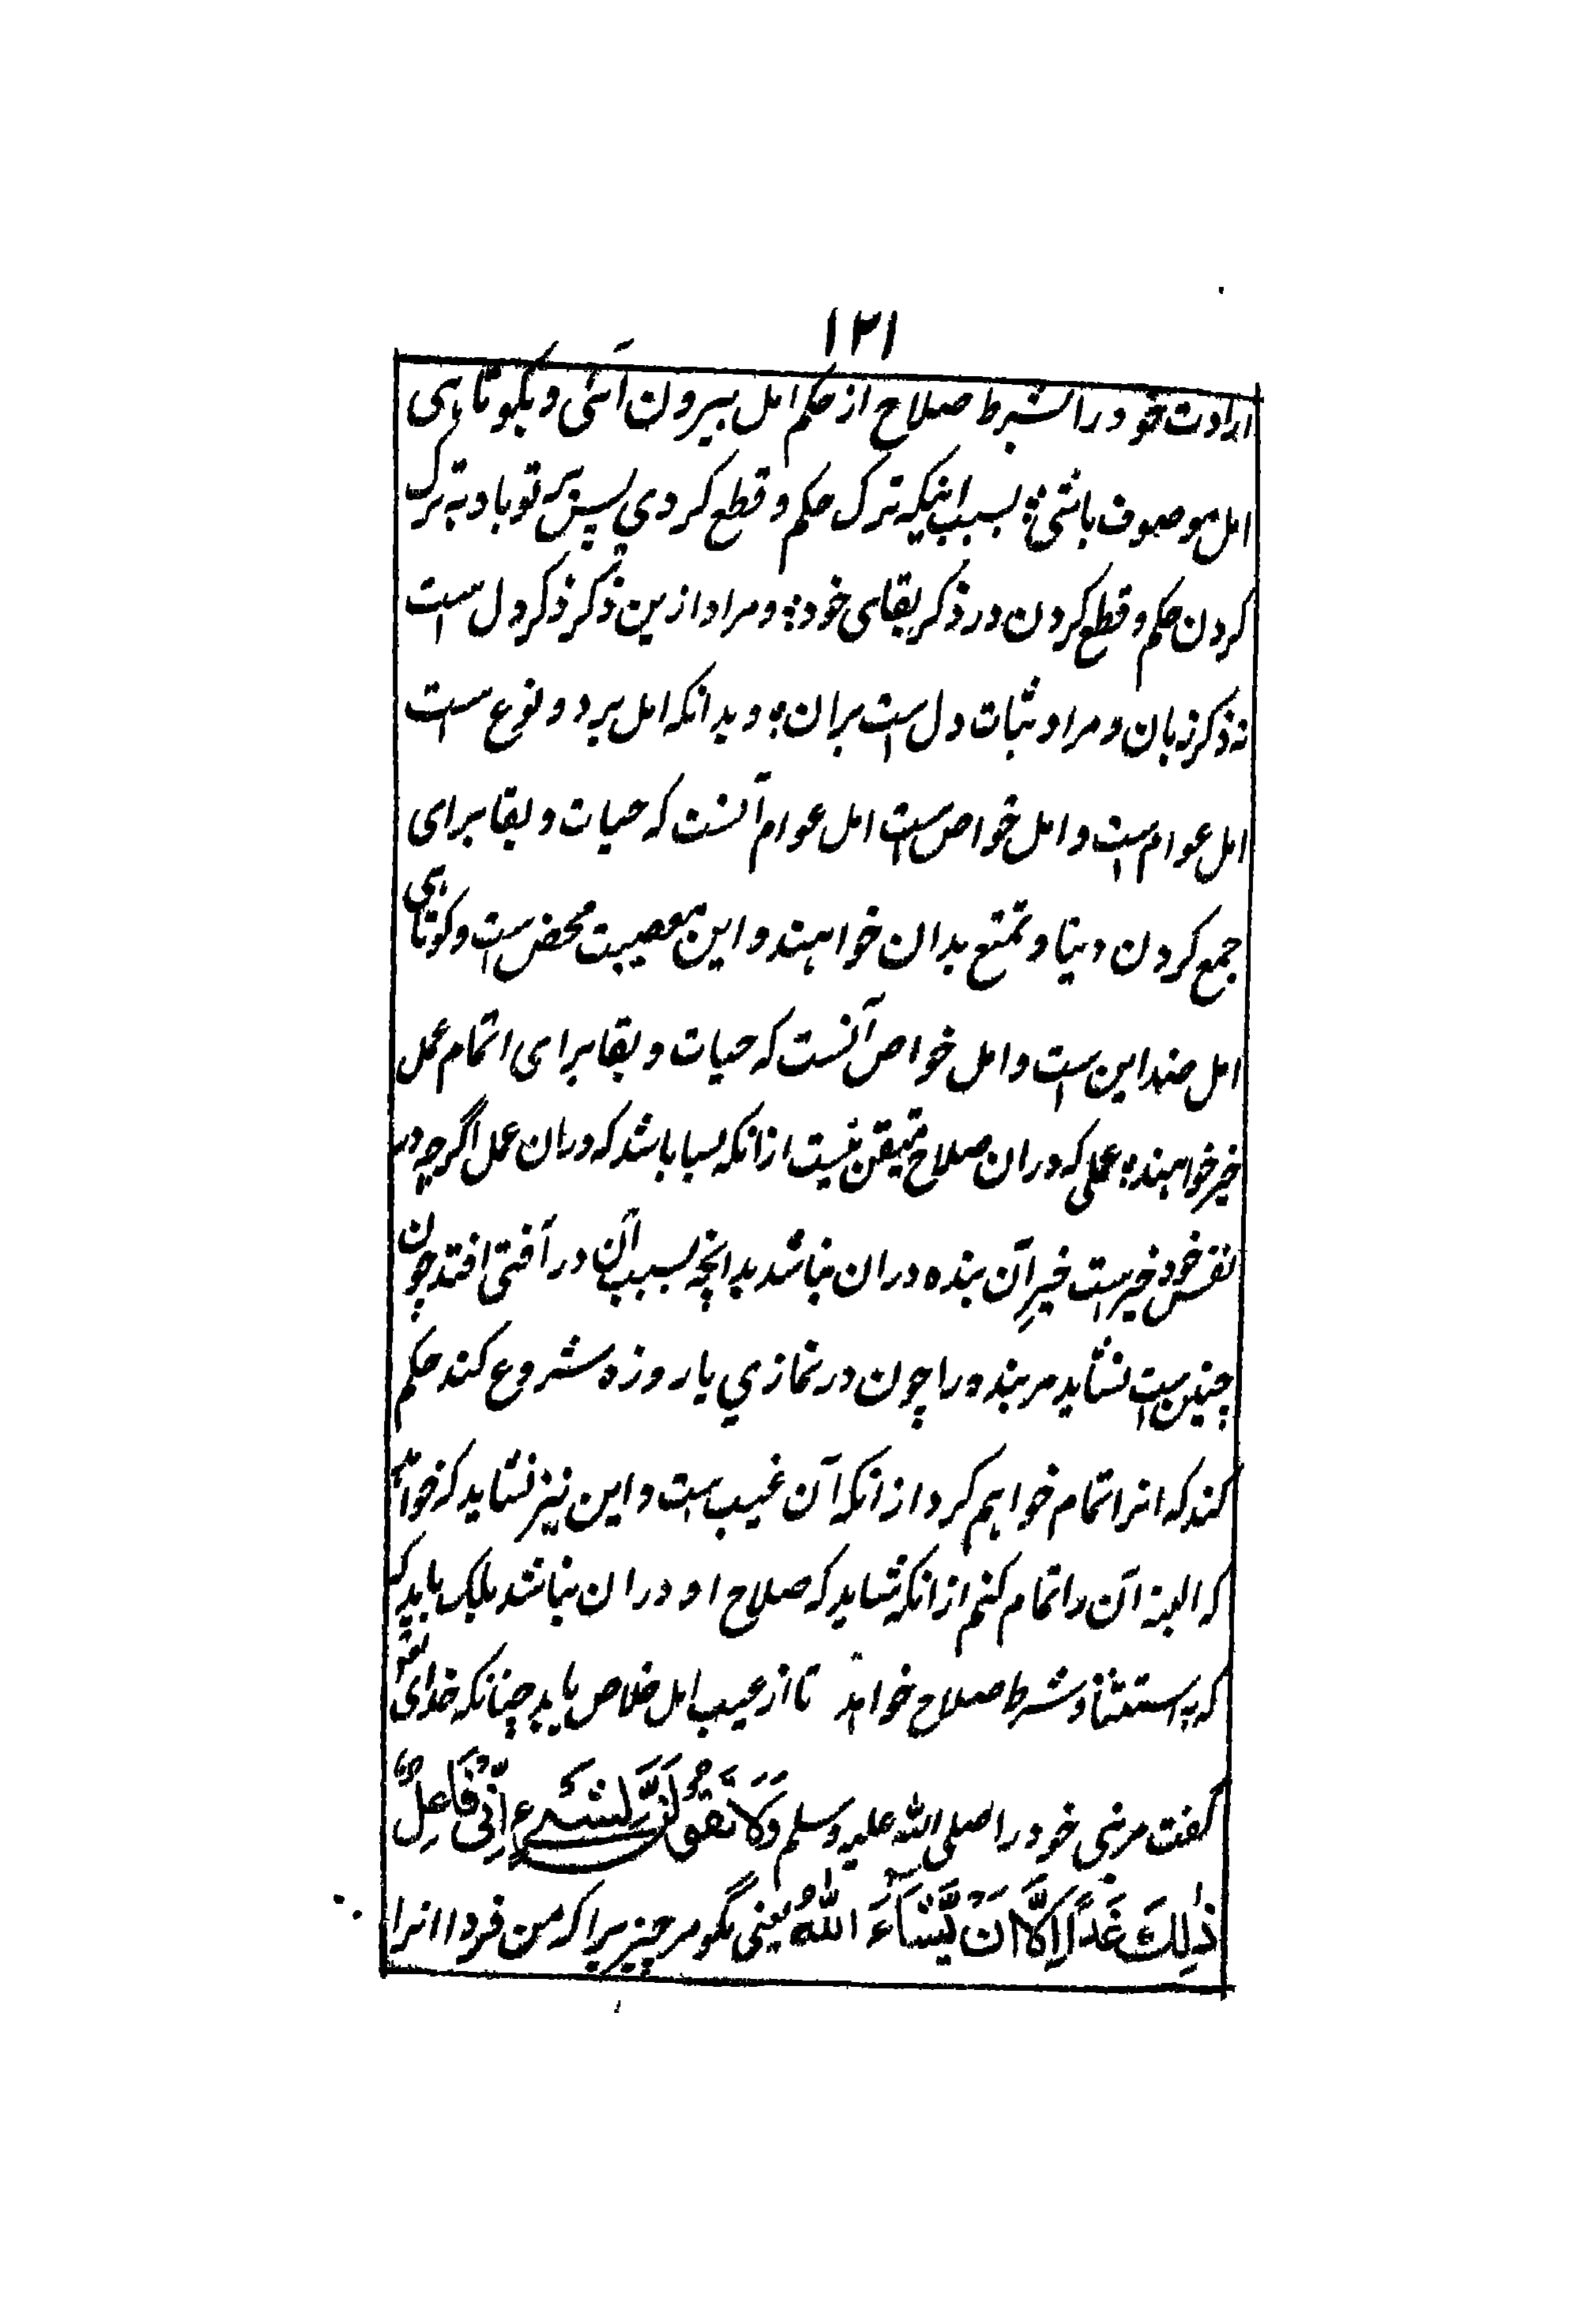 ۱۲۱
ارادت خود را بشرط صلاح از حکم امل بیرون آئی و بکوتاہی
امل موصوف باشی؛ بسبب اینکه ترک حکم و قطع کردي پس بر تو باد به ترک
کردن حکم و قطع کردن در ذکر بقای خود؛ و مراد ازین ذکر ذکر دل است
نه ذکر زبان و مراد ثبات دل است بران؛ و بدانکه امل بر دو نوع است
امل عوام است و امل خواص است امل عوام آنست که حیات و بقا برای
جمع کردن دنیا و تمتع بدان خواهند و این معصیت محض است و کوتاہی
امل ضد این است و امل خواص آنست که حیات و بقا برای اتمام عمل
خیر خواهند؛ عملی که دران صلاح متیقن نیست ازانکه بسا باشد که دران عمل اگرچه در
نفس خود خیر است خیرِ آن بنده دران نباشد بدانچه بسبب آن در آفتی افتد چون
چنین است نشاید مر بنده را چون در نمازي یا روزه شروع کند حکم
کند که انرا تمام خواہم کرد ازانکه آن غیب است و این نیز نشاید که خواہد
که البته آن را تمام کنم ازانکه شاید که صلاح او دران نباشد بلکه باید که
که به استثنا و شرط صلاح خواہد تا از عیب امل خلاص یابد چنانکه خدای تعو
گفت مر نبی خود را صلی الله علیه وسلم وَلَا تَقُوْلَنَّ لِشَیْءٍ اِنِّیْ فَاعِلٌ
ذٰلِكَ غَدًا اِلَّا اَنْ یَّشَآءَ اللّٰهُ یعنی مگو مر چیزیرا که من فردا انرا